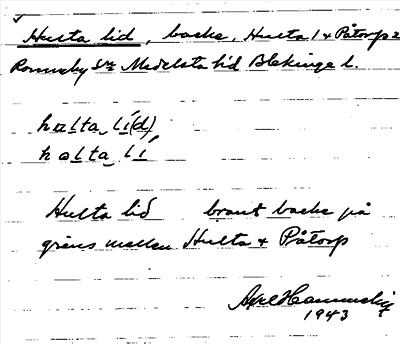 Hulta lid, backe, Hulta 1 & Påtorp 2
Ronneby sn Medelsta hd Blekinge l.
hɑlta lí(d)
hɑlta lí
Hulta lid brant backe på
gräns mellan Hulta & Påtorp
Axel
1943